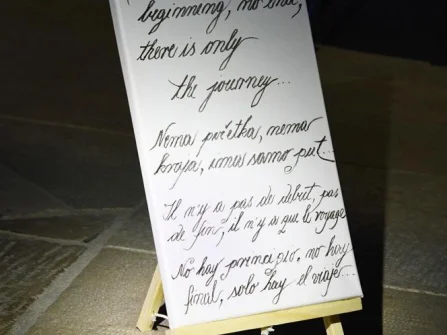 beginning, no end,
there is only
the journey...
Nema početka, nema
kraja, ima samo put...
Il n'y a pas de début, pas
de fin, il n'y a que le voyage
No hay principio, no hay
final, solo hay el viaje...